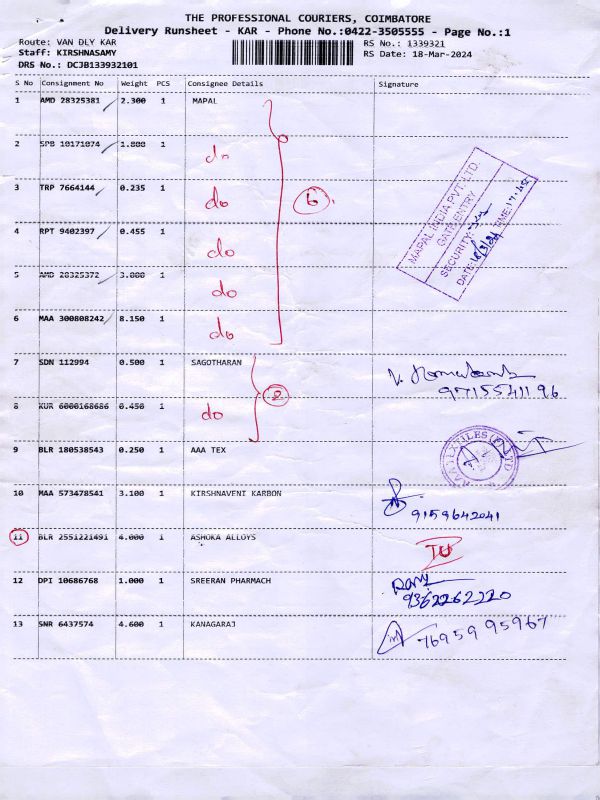 THE PROFESSIONAL COURIERS, COIMBATORE
Delivery Runsheet - KAR - Phone No.:0422-3505555 - Page No.:1
Route: VAN DLY KAR
Staff: KIRSHNASAMY
DRS No.: DCJB133932101
RS No.: 1339321
RS Date: 18-Mar-2024
S No Consignment No Weight PCS Consignee Details Signature
1 AMD 28325381 2.300 1 MAPAL
2 SPB 10171074 1.800 1 do
3 TRP 7664144 0.235 1 do
6
4 RPT 9402397 0.455 1 do
5 AMD 28325372 3.000 1 do
6 MAA 300808242 8.150 1 do
MAPAL INDIA PVT. LTD.
GATE ENTRY
SECURITY:
DATE: TIME:
7 SDN 112994 0.500 1 SAGOTHARAN
9715541196
2
8 KUR 6000168686 0.450 1 do
9 BLR 180538543 0.250 1 AAA TEX
10 MAA 573478541 3.100 1 KIRSHNAVENI KARBON
9159642041
11 BLR 2551221491 4.000 1 ASHOKA ALLOYS
12 DPI 10686768 1.000 1 SREERAN PHARMACH
9362262220
13 SNR 6437574 4.600 1 KANAGARAJ
76959 95967